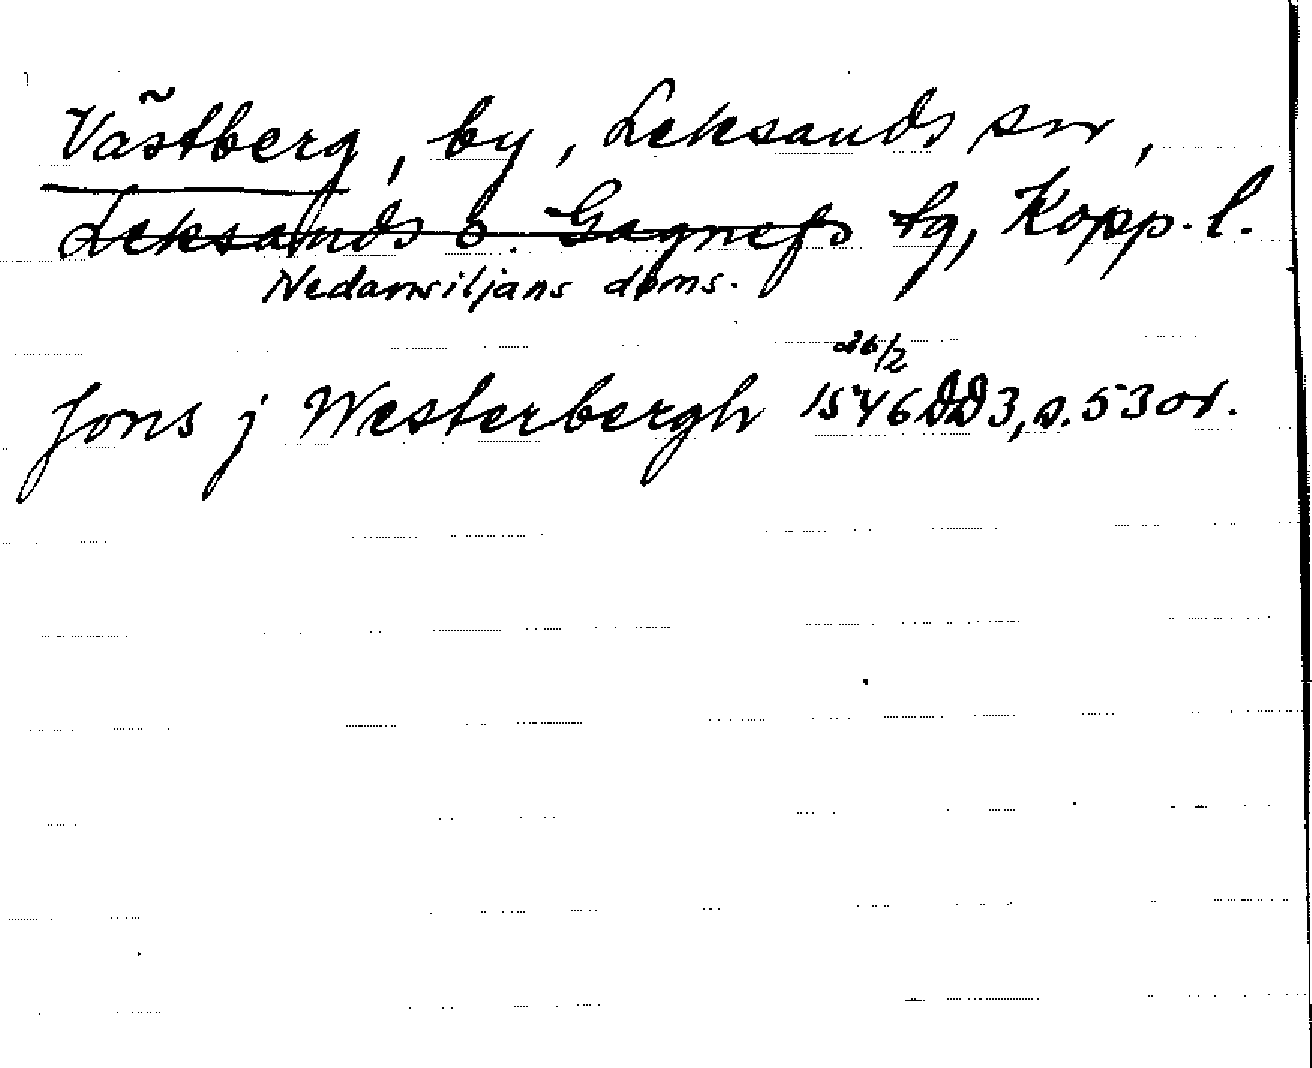 Västberg, by, Leksands sn,
Leksands o. Gagnefs tg, Kopp. l.
Nedansiljans doms.
26/2
Jons j Westerbergh 1546 DD3, s. 53 or.